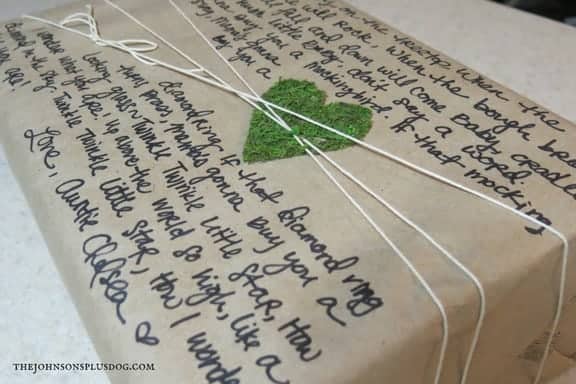 the treetop when the
will Rock, when the bough brea
fall, and down will come Baby cradle
Hush little Baby, don't say a word
you a mockingbird. If that mocking
buy you a
diamondring. If that diamond ring
turns brass, mama's gonna buy you a
looking glass. Twinkle Twinkle little star, how
I wonder what you are! up above the world so high, like a
diamond in the sky. Twinkle Twinkle little star, how I wonder
you are!
Love, Auntie Chelsea ♡
THEJOHNSONSPLUSDOG.COM